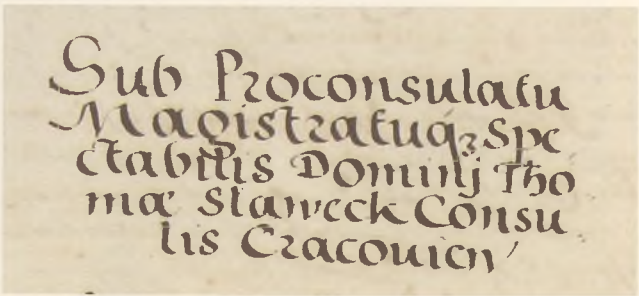 Sub Proconsulatu
Magistratuq₃ Spe
ctabilis Dominij Tho
mæ Slaweck Consu
lis Cracouien'